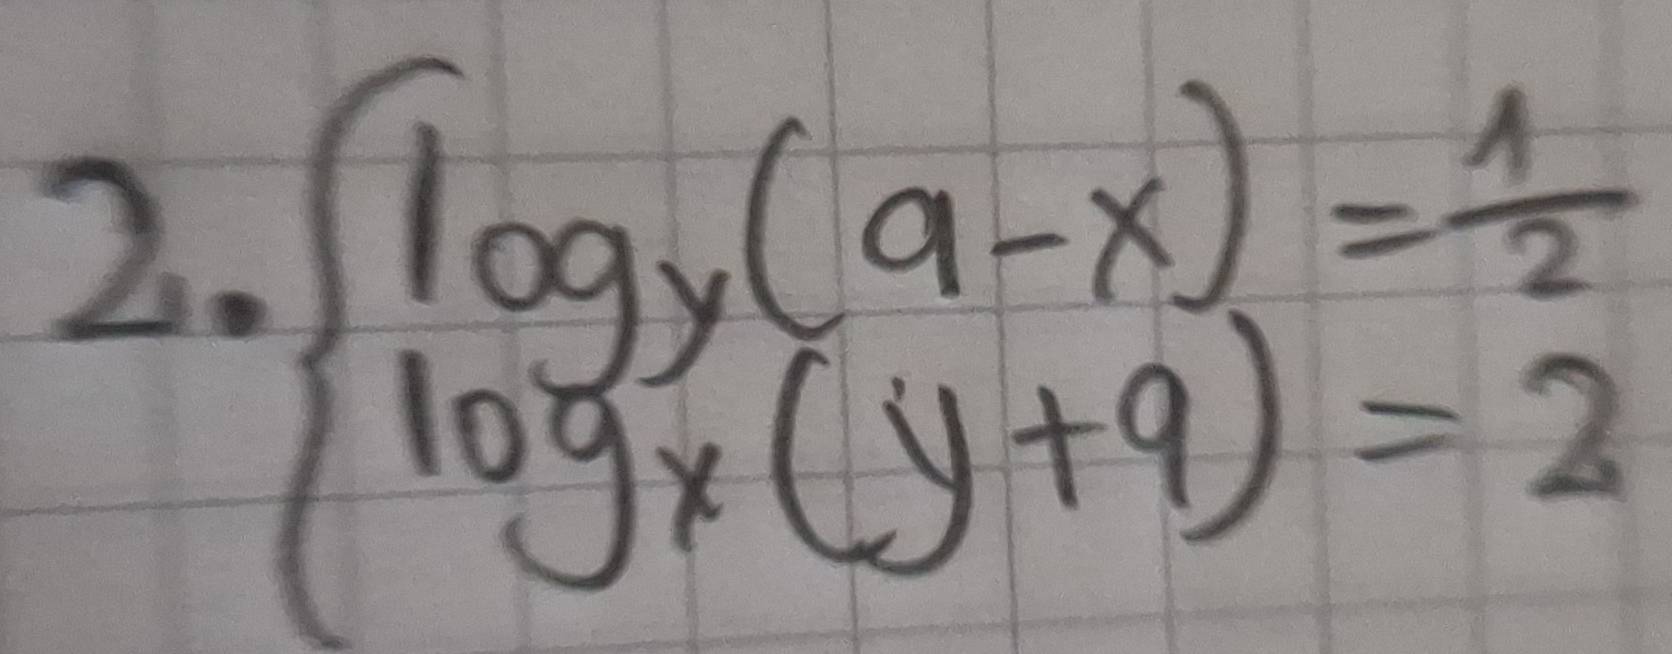 2. { log_y(9-x) = 1/2
log_x(y+9) = 2